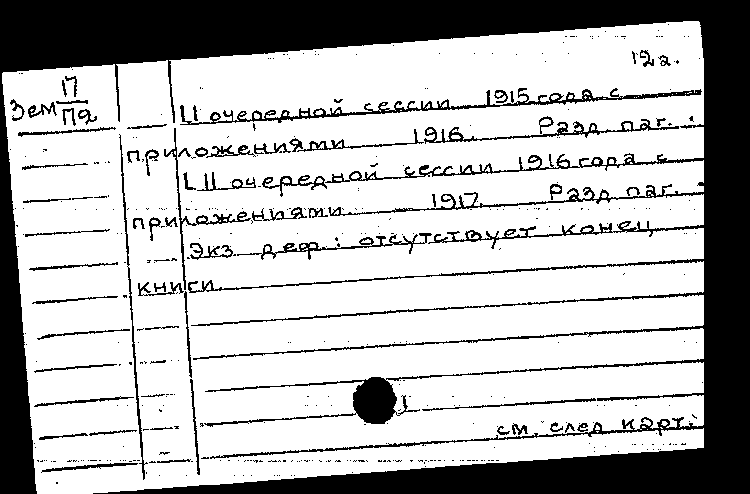 12а.
Зем П/Па
LI очередной сессии 1915 года с
приложениями 1916. Разд. паг. :
LII очередной сессии 1916 года с
приложениями 1917. Разд. паг. :
Экз деф.: отсутствует конец
книги.
см. след карт.